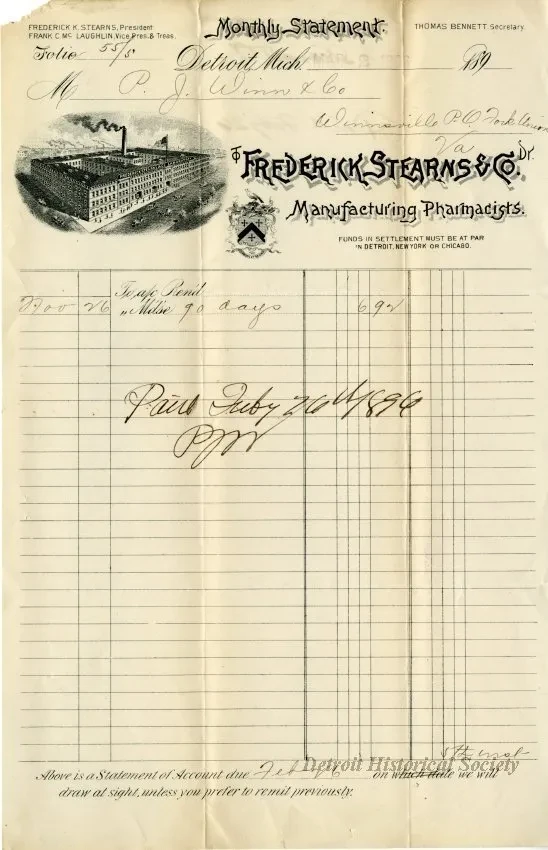 FREDERICK K. STEARNS, President.
FRANK C. Mc LAUGHLIN, Vice Pres. & Treas.
Monthly Statement.
THOMAS BENNETT, Secretary.
Folio 55/5
Detroit, Mich. 189
M P. J. Winn & Co
Winnsville P.O Fork Union
Va
To FREDERICK STEARNS & CO. Dr.
Manufacturing Pharmacists.
FUNDS IN SETTLEMENT MUST BE AT PAR
IN DETROIT, NEW YORK OR CHICAGO.
To a/c Rend
Nov 26 " Mdse 90 days 6 92
Paid Feby 26th 1896
PJW
5th inst
Above is a Statement of Account due Feb on which date we will
draw at sight, unless you prefer to remit previously.
Detroit Historical Society